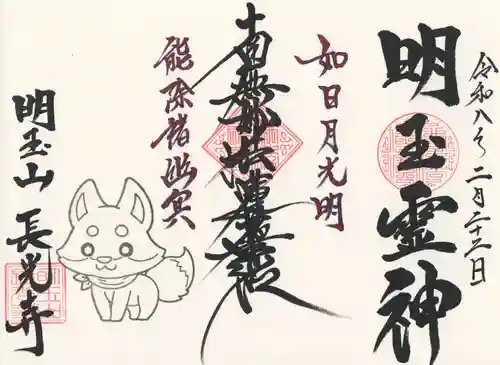 令和八年二月二十二日
明玉霊神
如日月光明
南無妙法蓮華経
能除諸幽冥
明玉山 長光寺